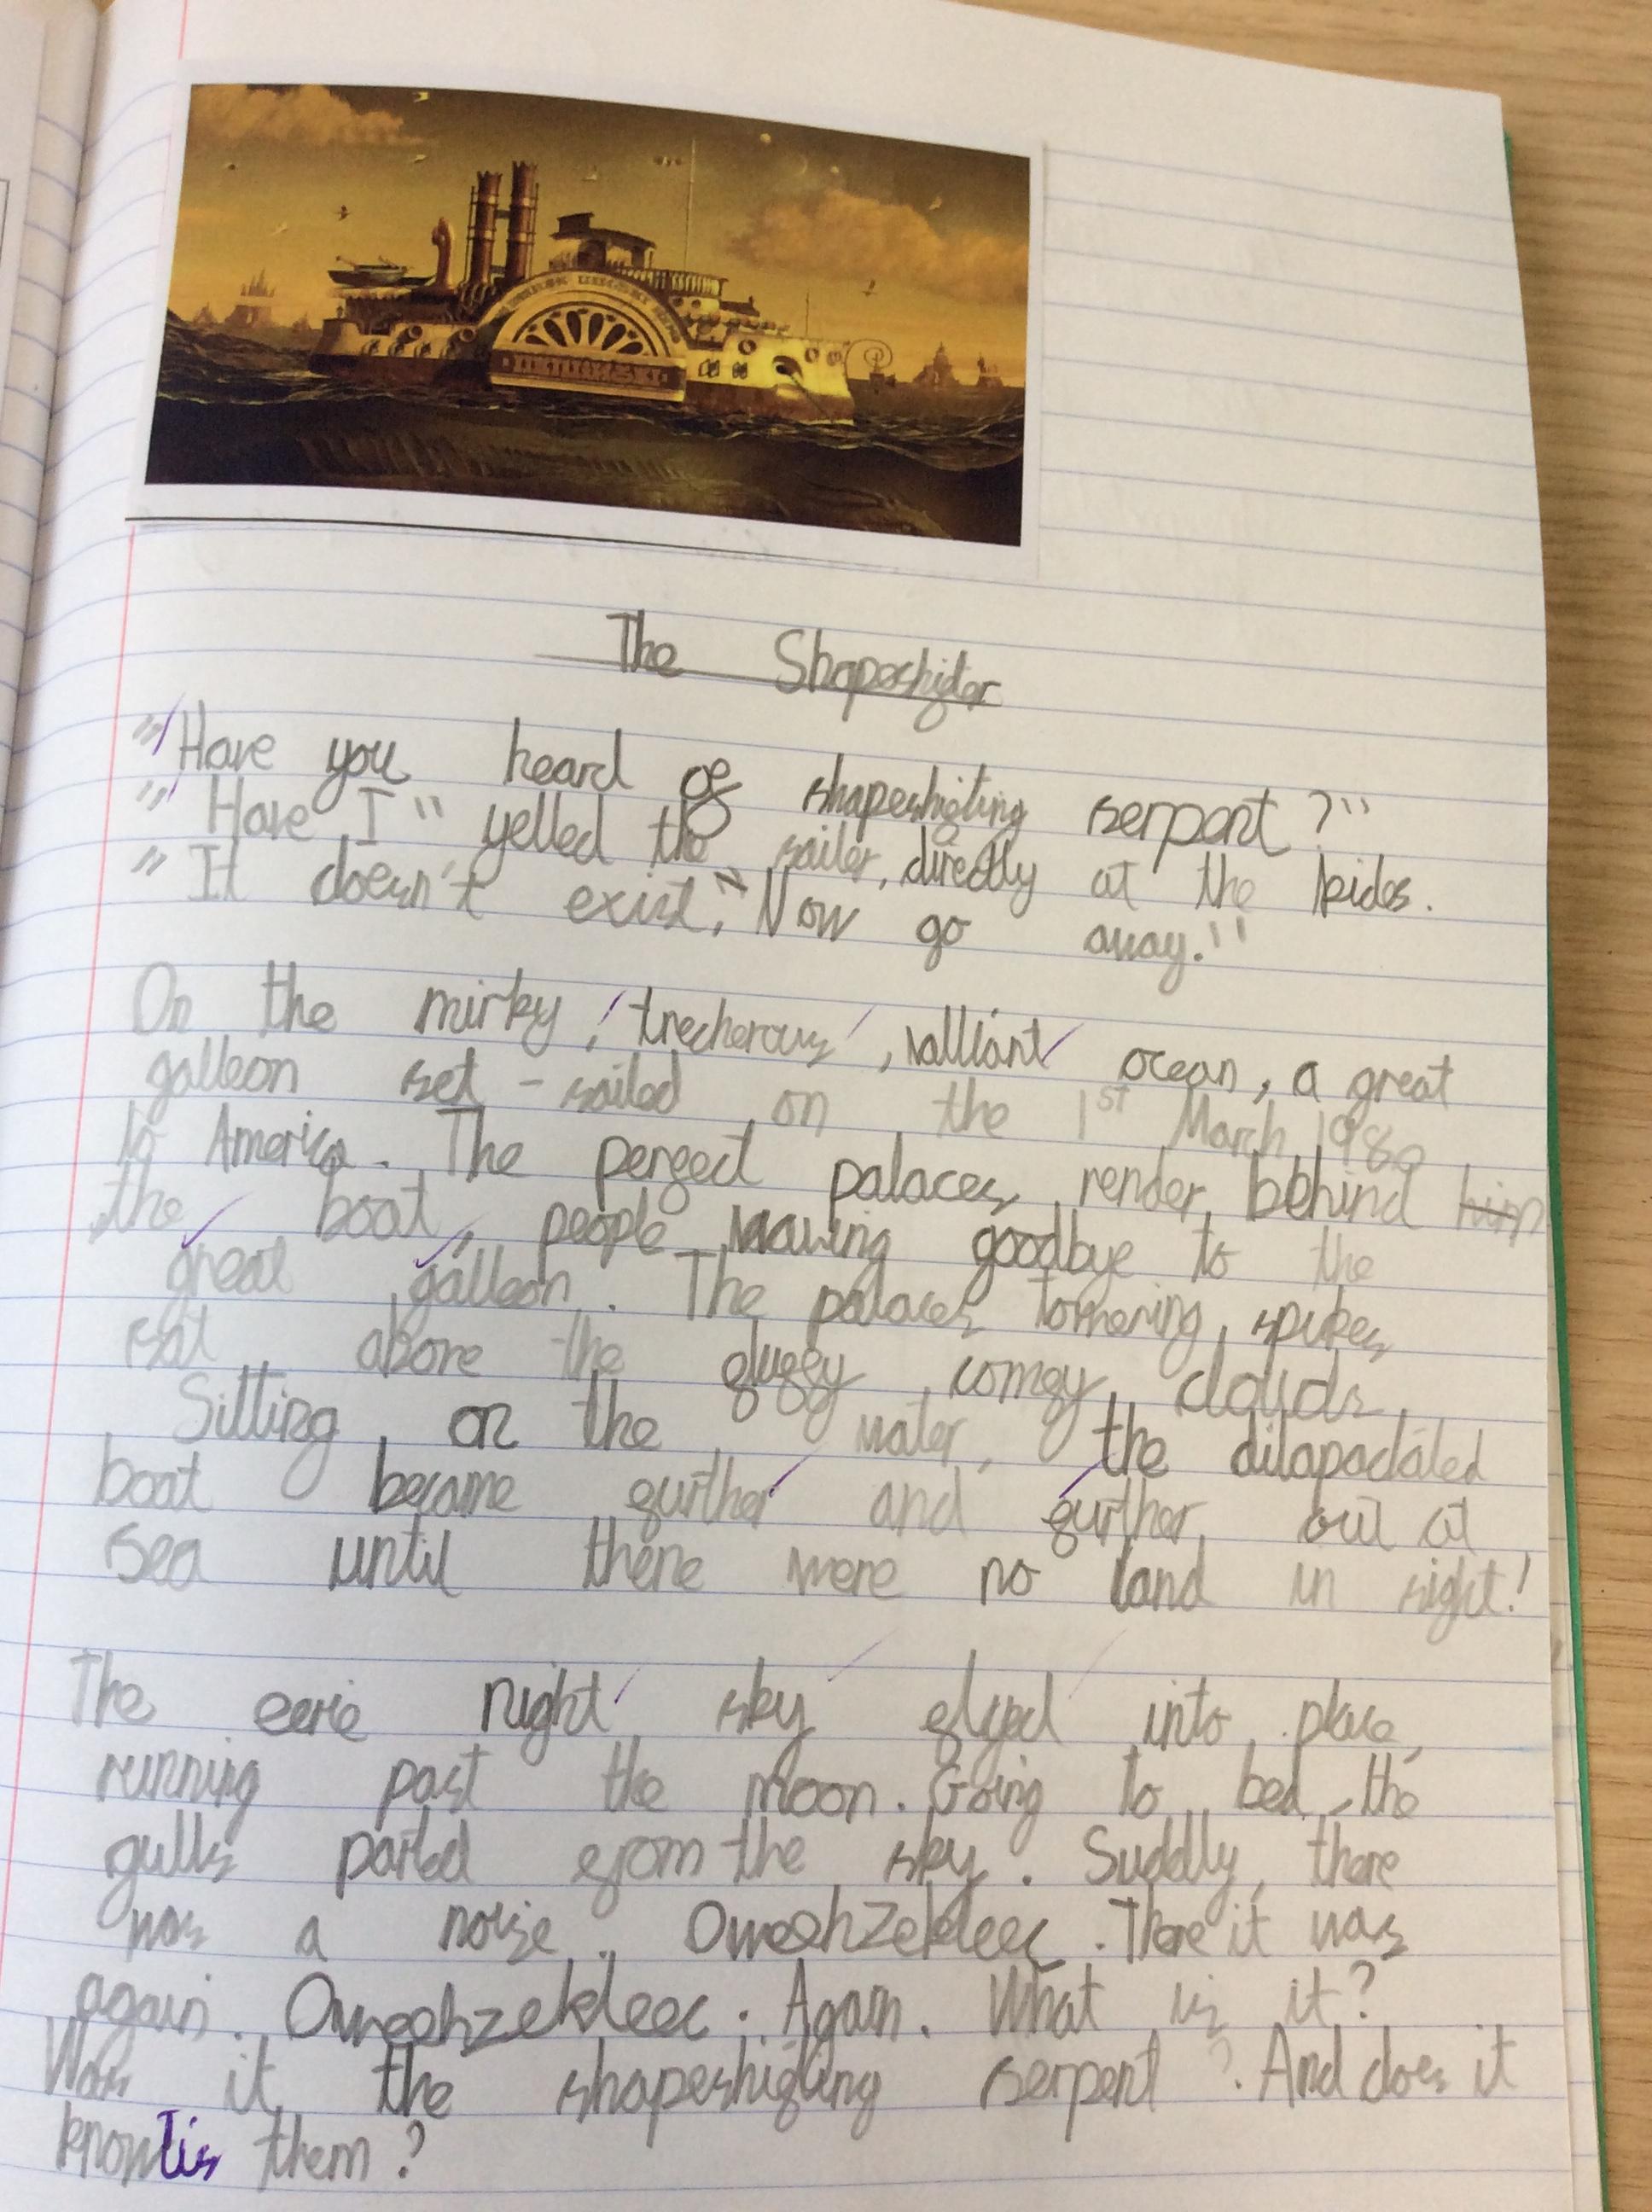 The Shapeshifter
"Have you heard of shapeshifting serpent?"
"Have I" yelled the sailer, directly at the kides.
"It doesn't exist." Now go away."
On the mirky, trecherous, valliant ocean, a great
galleon set-sailed on the 1st March 1980
to America. The perfect palaces render behind him
the boat, people waving goodbye to the
great galleon. The palaces towering spikes
sat above the fluffy comfy clouds
Sitting on the water, the dilapadated
boat became further and further out at
sea until there were no land in sight!
The eerie night sky into place,
running past the moon. Going to bed, the
gulls parted from the sky. Suddly, there
was a noise. Oweehzekleec. There it was
again. Oweehzekleec. Again. What is it?
Was it the shapeshifting serpent? And does it
know them?